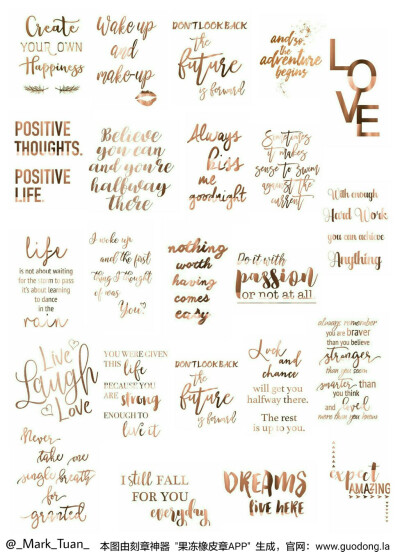 Create
YOUR OWN
Happiness
Wake up
and
make-up
DON'T LOOK BACK
The
future
is forward
and so, the
adventure
begins
LOVE
POSITIVE
THOUGHTS.
POSITIVE
LIFE.
Believe
you can
and you're
halfway
there
Always
Kiss
me
goodnight
Sometimes
it makes
sense to swim
against the
current
With enough
Hard Work
you can achieve
Anything
life
is not about waiting
for the storm to pass
it's about learning
to dance
in the
rain
I woke up
and the first
thing I thought
of was
You!
nothing
worth
having
comes
easy
Do it with
passion
or not at all
Live
Laugh
Love
YOU WERE GIVEN
THIS life
BECAUSE YOU
ARE strong
ENOUGH TO
live it
DON'T LOOK BACK
The
future
is forward
Luck
and
chance
will get you
halfway there.
The rest
is up to you.
always remember
you are braver
than you believe
stronger
than you seem
smarter than
you think
and loved
more than you know
Never
take one
single breath
for
granted
I still FALL
FOR YOU
everyday
DREAMS
live HERE
expect
AMAZING
@_Mark_Tuan_ 本图由刻章神器 "果冻橡皮章APP" 生成，官网：www.guodong.la